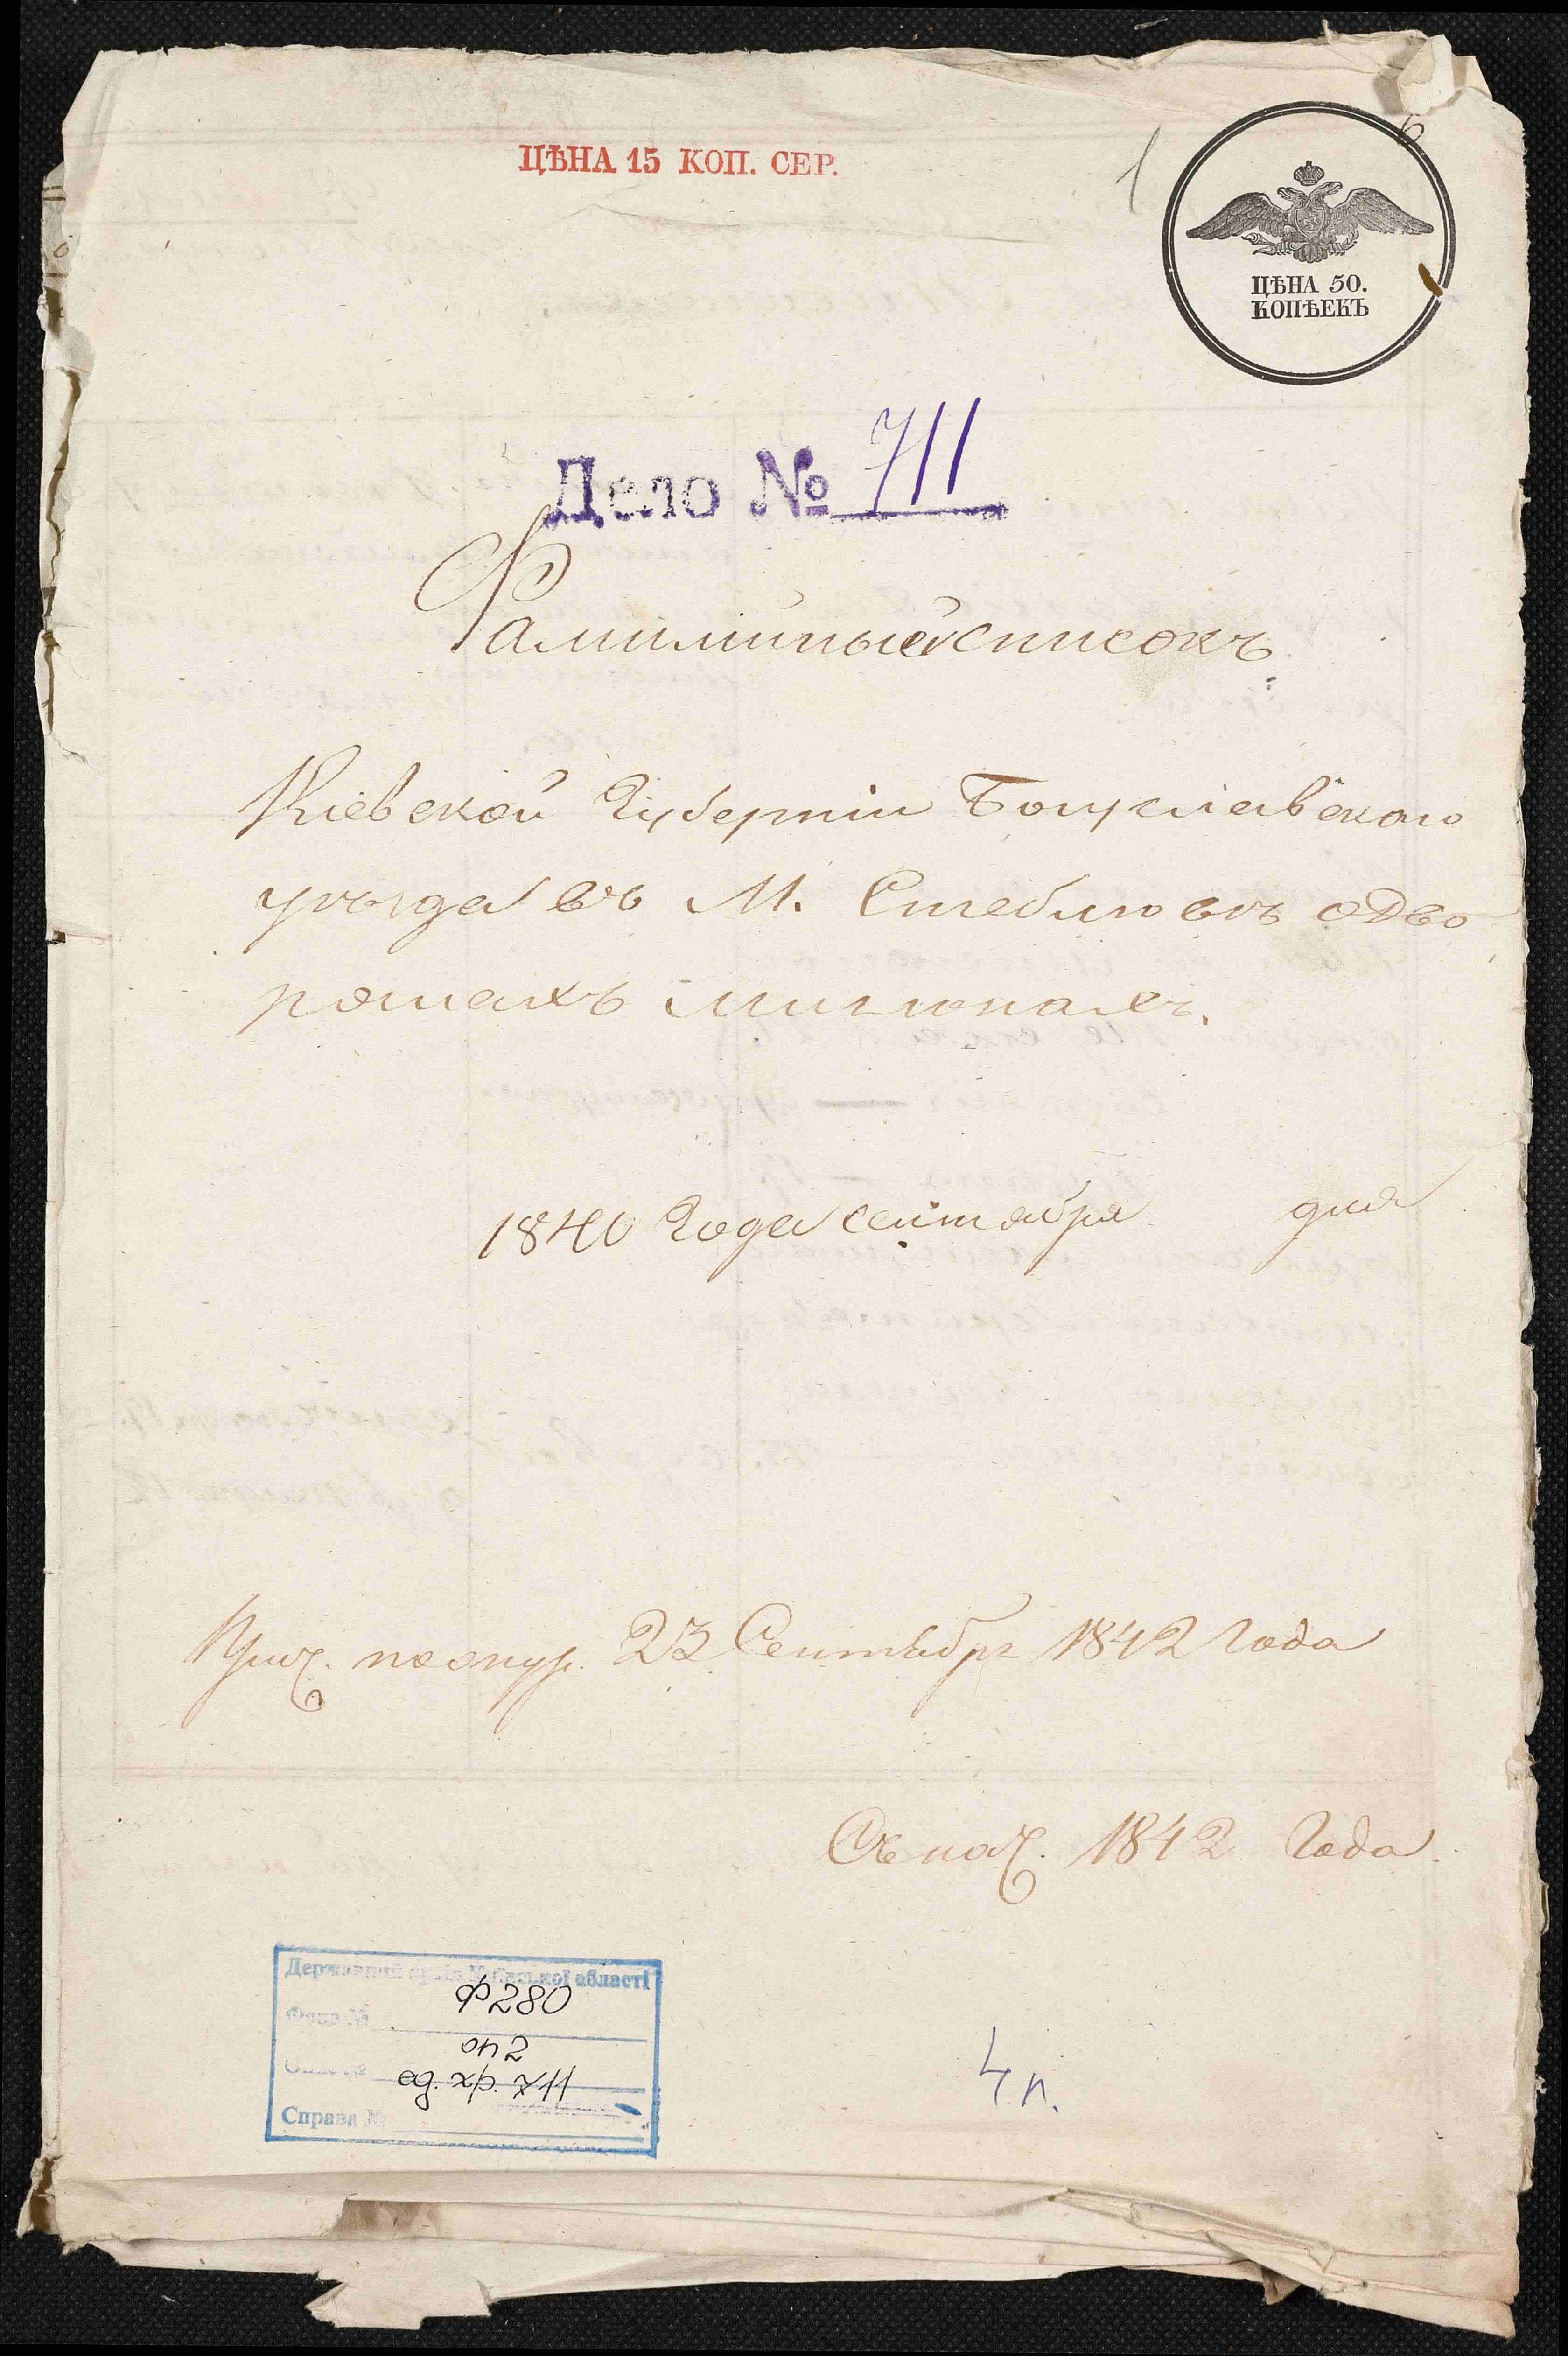 ЦѢНА 15 КОП. СЕР.
1
ЦѢНА 50.
КОПѢЕКЪ
Дело № 711
Фамилиный списокъ
Кіевской Губерніи Богуславского
уѣзда въ М. Стеблювѣ одво
рянахъ
1840 Года сентября дня
23 Сентября 1842 года
1842 Года
Державний архів Київської області
Фонд № Ф280
оп 2
ед. хр. 711
Справа №
4 л.